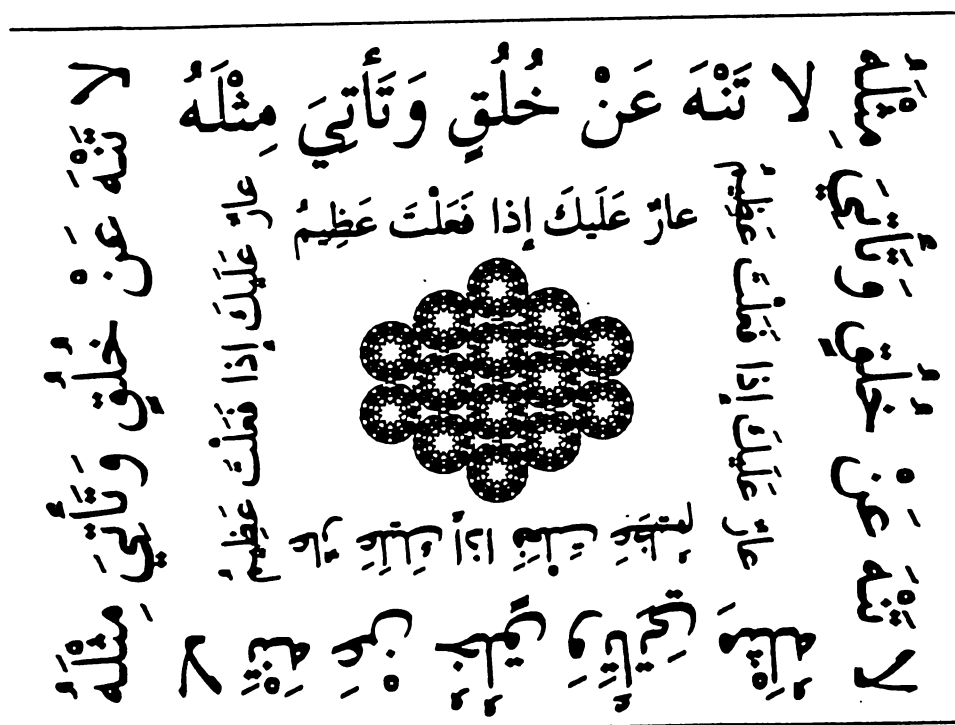 لا تَنْهَ عَنْ خُلُقٍ وَتَأْتِيَ مِثْلَهُ
عارٌ عَلَيكَ إِذا فَعَلْتَ عَظِيمُ
لا تَنْهَ عَنْ خُلُقٍ وَتَأْتِيَ مِثْلَهُ
عارٌ عَلَيكَ إِذا فَعَلْتَ عَظِيمُ
لا تَنْهَ عَنْ خُلُقٍ وَتَأْتِيَ مِثْلَهُ
عارٌ عَلَيكَ إِذا فَعَلْتَ عَظِيمُ
لا تَنْهَ عَنْ خُلُقٍ وَتَأْتِيَ مِثْلَهُ
عارٌ عَلَيكَ إِذا فَعَلْتَ عَظِيمُ